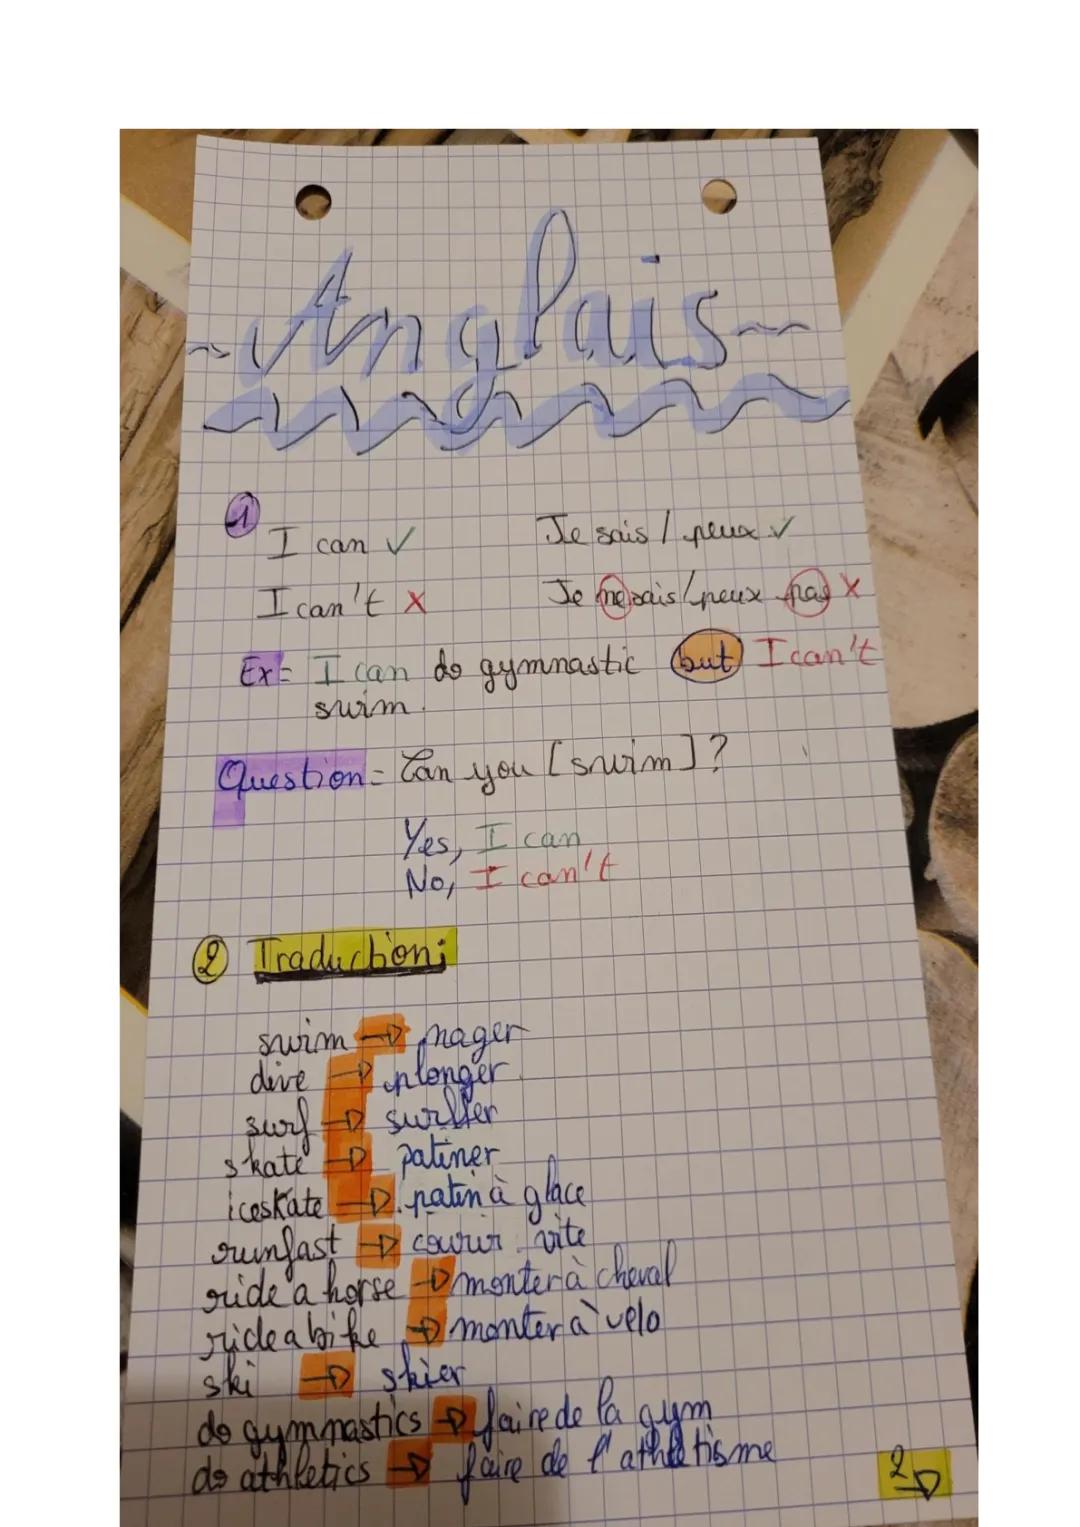 ~Anglais~
1
I can ✓ Je sais / peux ✓
I can't X Je ne sais/peux pas X
Ex = I can do gymnastic but I can't
swim.
Question = Can you [swim]?
Yes, I can
No, I can't
2 Traduction:
swim → nager
dive → plonger
surf → surfer
skate → patiner
iceskate → patin à glace
run fast → courir vite
ride a horse → monter à cheval
ride a bike → monter à vélo
ski → skier
do gymnastics → faire de la gym
do athletics → faire de l'athlétisme
2→